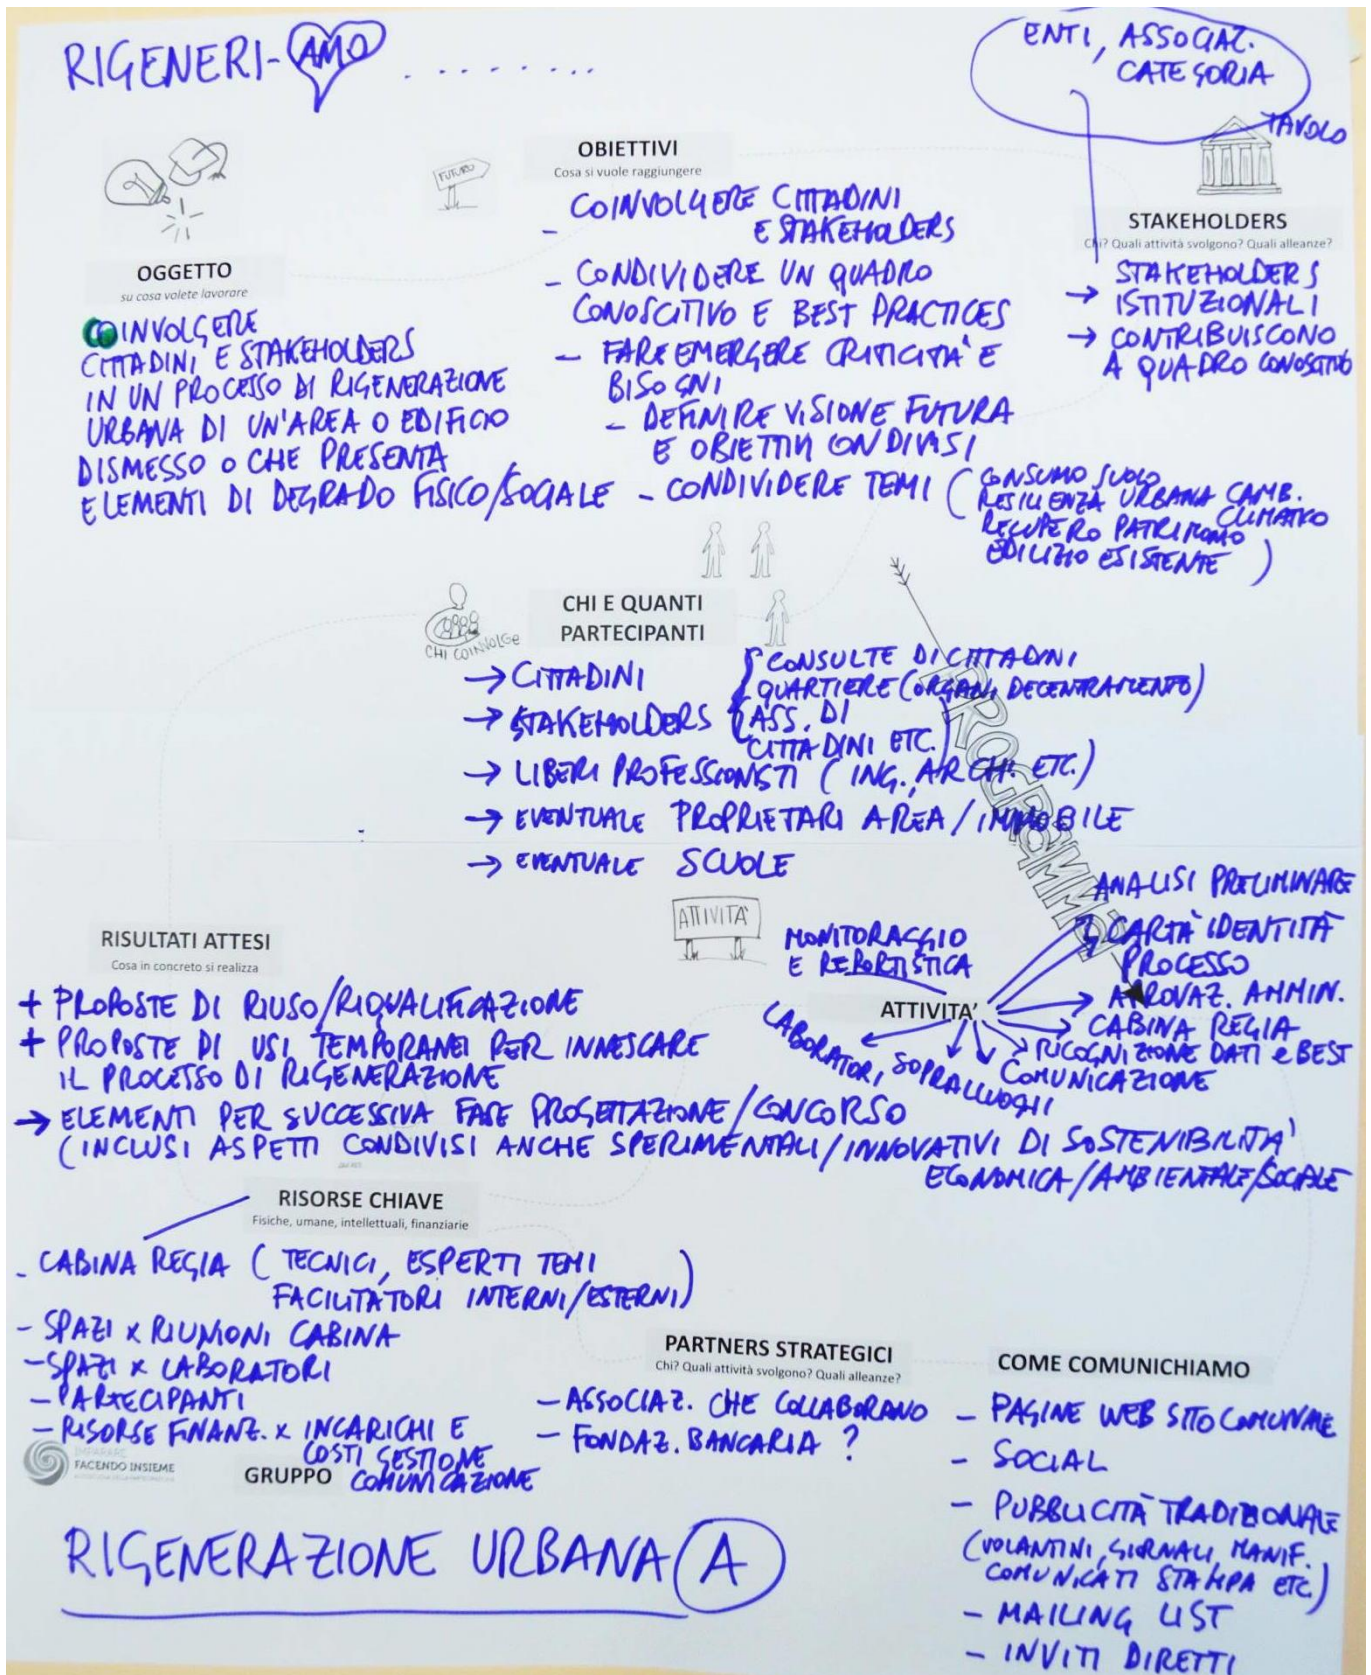 RIGENERI-AMO ........
ENTI, ASSOCIAZ.
CATEGORIA
TAVOLO
OGGETTO
su cosa volete lavorare
COINVOLGERE
CITTADINI E STAKEHOLDERS
IN UN PROCESSO DI RIGENERAZIONE
URBANA DI UN'AREA O EDIFICIO
DISMESSO O CHE PRESENTA
ELEMENTI DI DEGRADO FISICO/SOCIALE
FUTURO
OBIETTIVI
Cosa si vuole raggiungere
- COINVOLGERE CITTADINI
E STAKEHOLDERS
- CONDIVIDERE UN QUADRO
CONOSCITIVO E BEST PRACTICES
- FARE EMERGERE CRITICITA' E
BISOGNI
- DEFINIRE VISIONE FUTURA
E OBIETTIVI CONDIVISI
- CONDIVIDERE TEMI (CONSUMO SUOLO
RESILIENZA URBANA CAMB.
CLIMATICO
RECUPERO PATRIMONIO
EDILIZIO ESISTENTE)
STAKEHOLDERS
Chi? Quali attività svolgono? Quali alleanze?
→ STAKEHOLDERS
ISTITUZIONALI
→ CONTRIBUISCONO
A QUADRO CONOSCITIVO
CHI COINVOLGE
CHI E QUANTI
PARTECIPANTI
→ CITTADINI
→ STAKEHOLDERS
CONSULTE DI CITTADINI
QUARTIERE (ORGANI DECENTRAMENTO)
ASS. DI
CITTADINI ETC.
→ LIBERI PROFESSIONISTI (ING., ARCH. ETC.)
→ EVENTUALE PROPRIETARI AREA/IMMOBILE
→ EVENTUALE SCUOLE
PROGRAMMA
ATTIVITA'
ATTIVITA'
ANALISI PRELIMINARE
CARTA IDENTITÀ
PROCESSO
APROVAZ. AMMIN.
CABINA REGIA
RICOGNIZIONE DATI e BEST
COMUNICAZIONE
LABORATORI, SOPRALLUOGHI
MONITORAGGIO
E REPORTISTICA
RISULTATI ATTESI
Cosa in concreto si realizza
+ PROPOSTE DI RIUSO/RIQUALIFICAZIONE
+ PROPOSTE DI USI TEMPORANEI PER INNESCARE
IL PROCESSO DI RIGENERAZIONE
→ ELEMENTI PER SUCCESSIVA FASE PROGETTAZIONE/CONCORSO
(INCLUSI ASPETTI CONDIVISI ANCHE SPERIMENTALI/INNOVATIVI DI SOSTENIBILITA'
ECONOMICA/AMBIENTALE/SOCIALE
RISORSE CHIAVE
Fisiche, umane, intellettuali, finanziarie
- CABINA REGIA (TECNICI, ESPERTI TEMI
FACILITATORI INTERNI/ESTERNI)
- SPAZI x RIUNIONI CABINA
- SPAZI x LABORATORI
- PARTECIPANTI
- RISORSE FINANZ. x INCARICHI E
COSTI GESTIONE
COMUNICAZIONE
PARTNERS STRATEGICI
Chi? Quali attività svolgono? Quali alleanze?
- ASSOCIAZ. CHE COLLABORANO
- FONDAZ. BANCARIA ?
COME COMUNICHIAMO
- PAGINE WEB SITO COMUNALE
- SOCIAL
- PUBBLICITÀ TRADIZIONALE
(VOLANTINI, GIORNALI, MANIF.
COMUNICATI STAMPA ETC.)
- MAILING LIST
- INVITI DIRETTI
IMPARARE
FACENDO INSIEME
GRUPPO
RIGENERAZIONE URBANA A